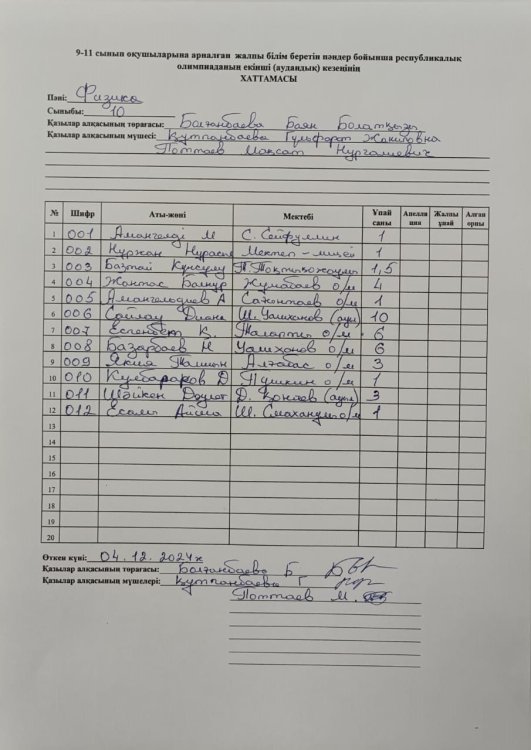 9-11 сынып оқушыларына арналған жалпы білім беретін пәндер бойынша республикалық
олимпиаданың екінші (аудандық) кезеңінің
ХАТТАМАСЫ
Пәні: Физика
Сыныбы: 10
Қазылар алқасының төрағасы: Болғанбаева Баян Болатқызы
Қазылар алқасының мүшесі: Құтпанбаева Гульфарт
Поттаев Мақсат Нургашевич
№ Шифр Аты-жөні Мектебі Ұпай саны Апелляция Жалпы ұпай Алған орны
1 001 Амангелді М С. Сейфуллин 1
2 002 Нұржан Мектеп-лицей 1
3 003 Базтай 1,5
4 004 Жантас Бақнұр Жұмабаев о/м 4
5 005 А о/м 1
6 006 Сайлау Диана Ш. Уалиханов (ауыл) 10
7 007 Еспенбет К. Жалапты о/м 6
8 008 Базарбаев Н Уалиханов о/м 6
9 009 Якия Алғабас о/м 3
10 010 Кулбараков Д Пушкин о/м 1
11 011 Шәйкен Дәулет Д. Қонаев (ауыл) 3
12 012 Есалы Ш. о/м 1
13
14
15
16
17
18
19
20
Өткен күні: 04.12.2024ж
Қазылар алқасының төрағасы: Болғанбаева Б
Қазылар алқасының мүшелері: Құтпанбаева Г
Поттаев М.